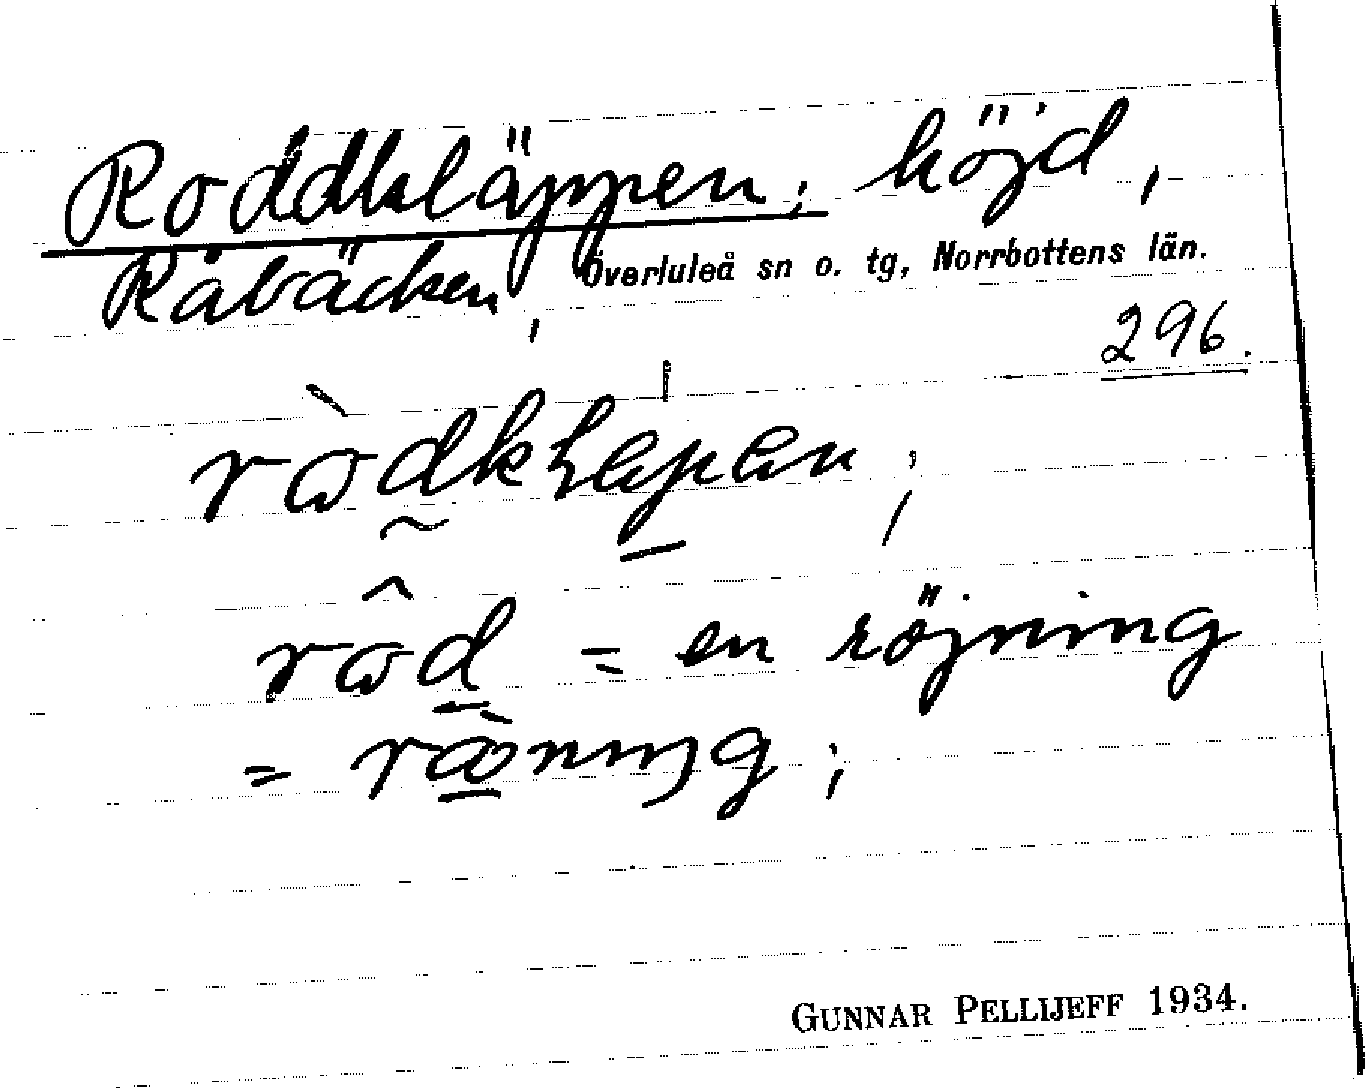 Roddkläppen; höjd,
Råbäcken, Överluleå sn o. tg, Norrbottens län.
296.
en röjning
GUNNAR PELLIJEFF 1934.